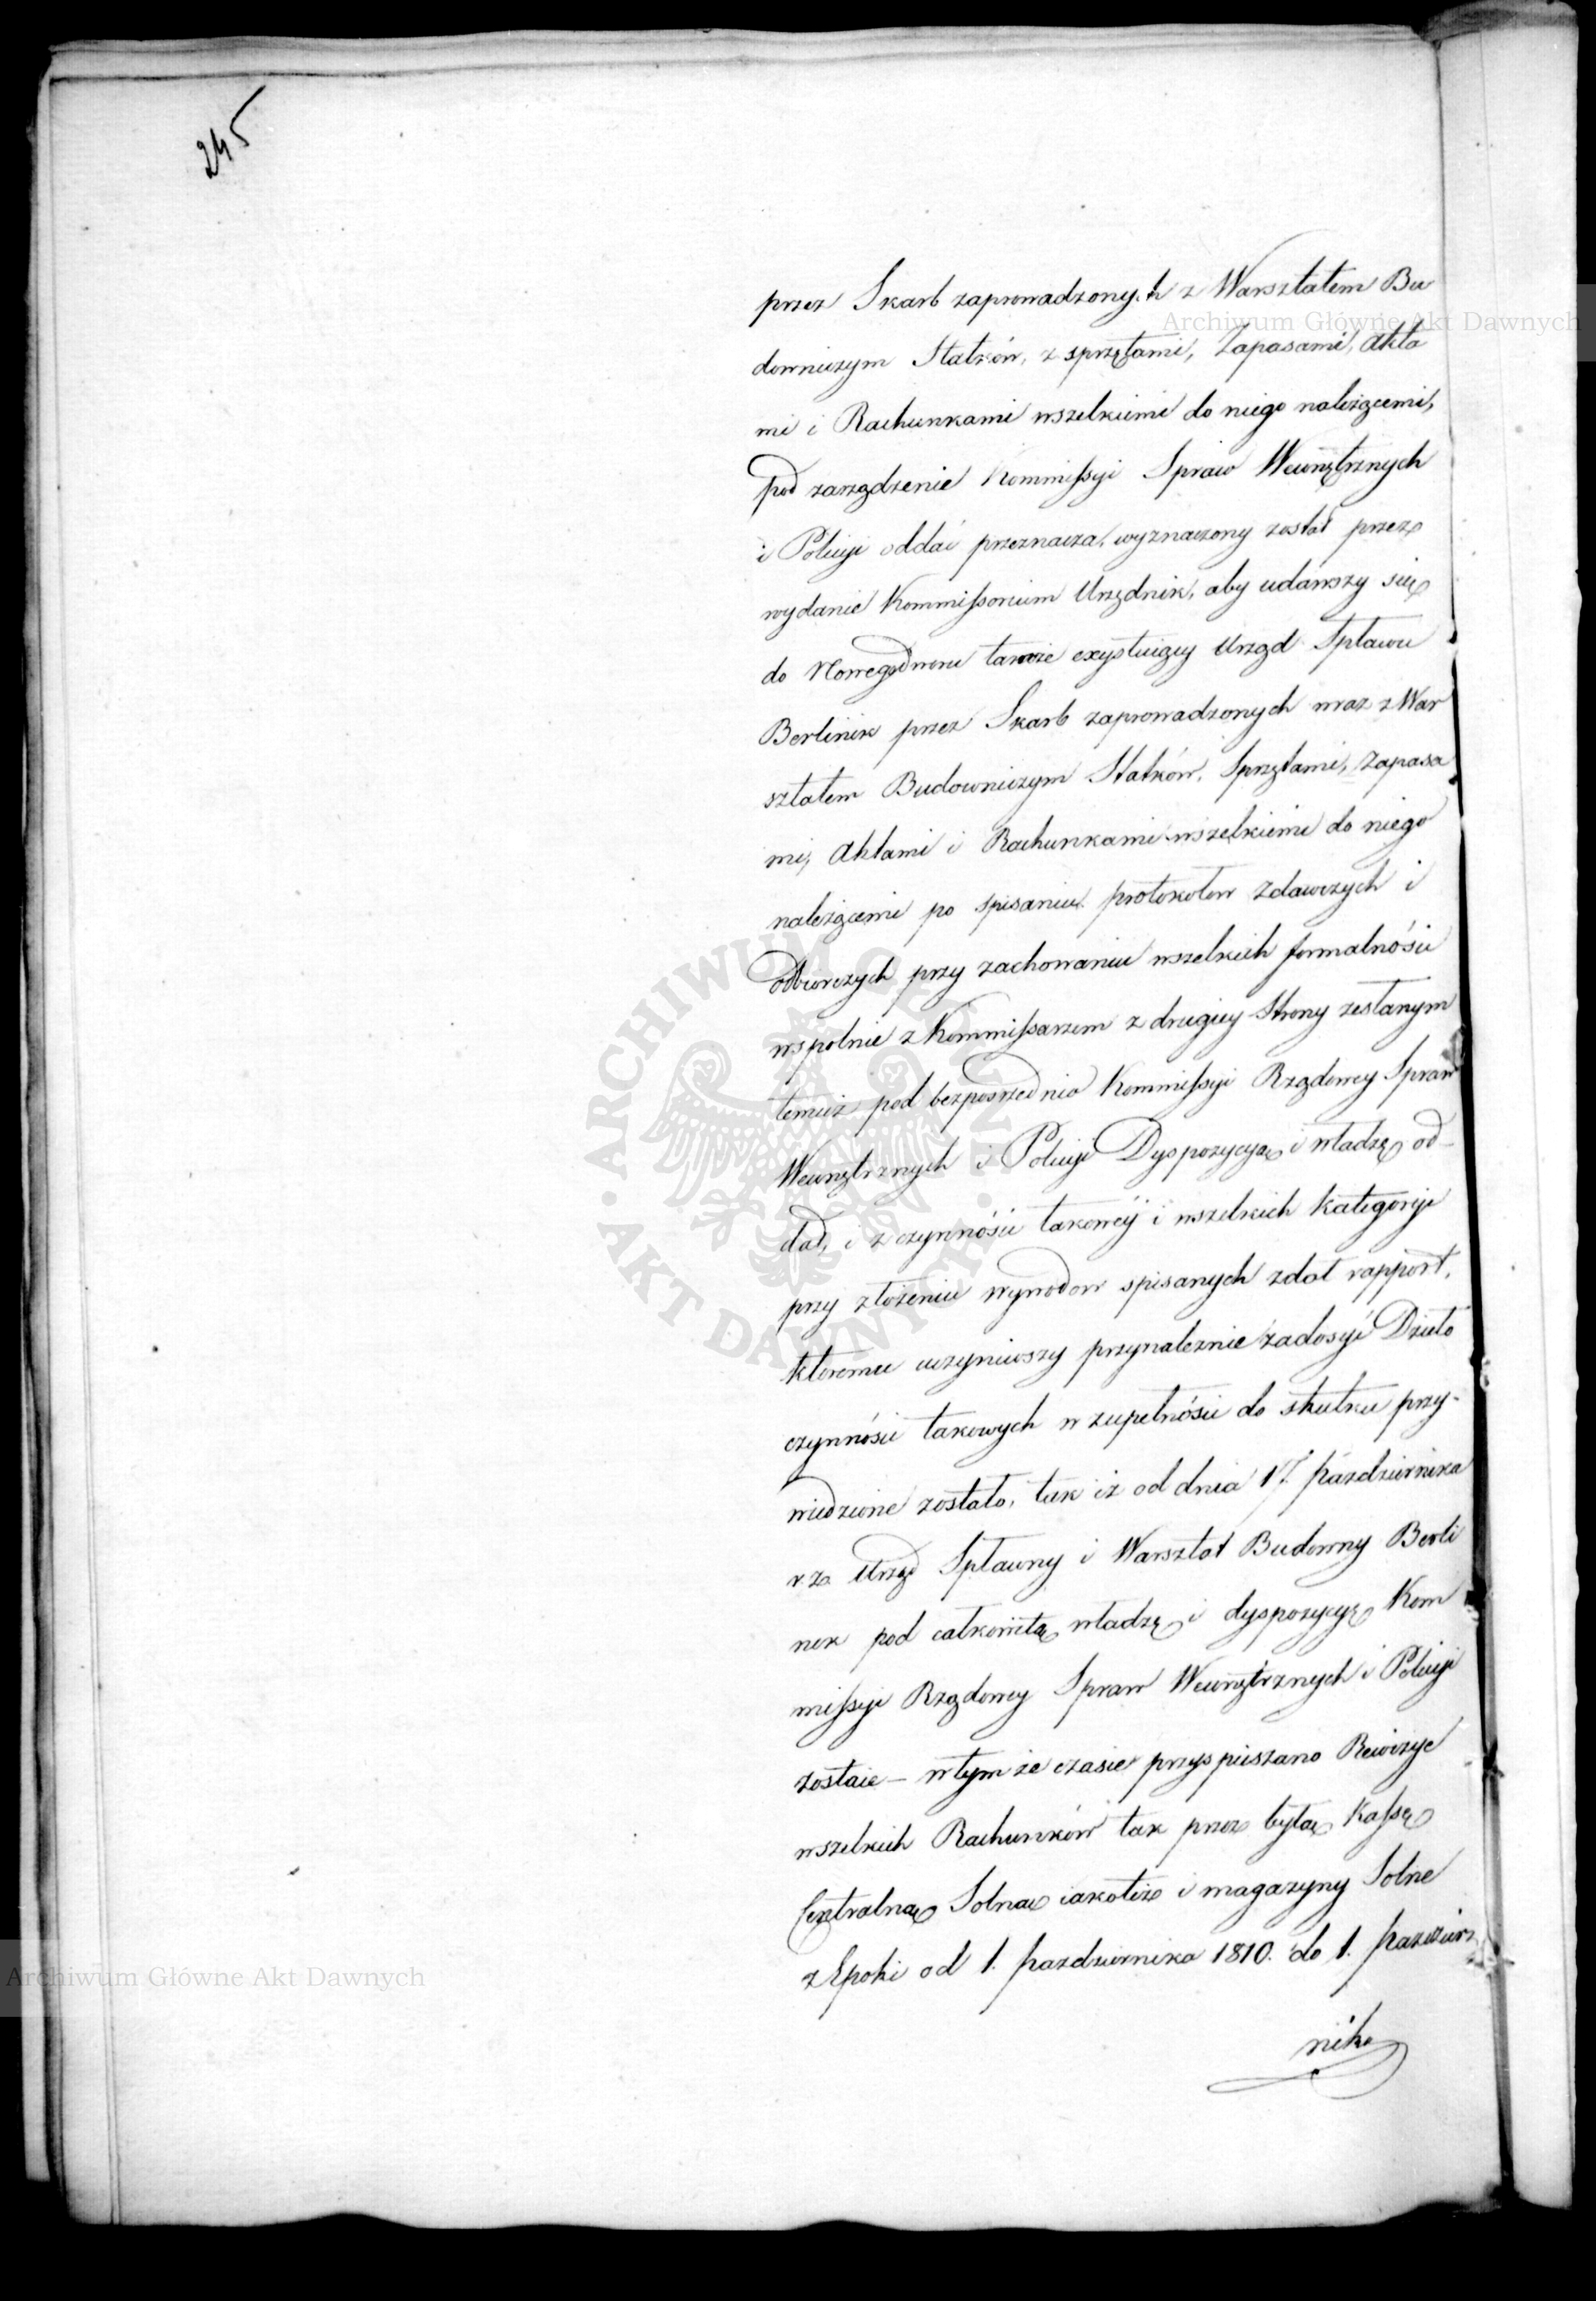 245
przez Skarb zaprowadzonych z Warsztatem Bu
downiczym Statków, z sprzętami, Zapasami, Akta
mi i Rachunkami wszelkiemi do niego należącemi,
pod zarządzenie Kommissyi Spraw Wewnętrznych
i Policyi oddać przeznacza, wyznaczony został przez
wydanie Kommissorium Urzędnik, aby udawszy się
do Nowegodworu tamże exystuiący Urząd Spławu
Berlinek przez Skarb zaprowadzonych wraz z War
sztatem Budowniczym Statków, Sprzętami, Zapasa
mi, Aktami i Rachunkami wszelkiemi do niego
należącemi po spisaniu protokołow Zdawczych i
odbiorczych przy zachowaniu wszelkich formalności
wspolnie z Kommissarzem z drugiey Strony zesłanym
temuż pod bezposrednio Kommissyi Rządowey Spraw
Wewnętrznych i Policyi Dyspozycyą i władzę od-
dał, i z czynności takowéy i wszelkich kategoryi
przy złożeniu wywodow spisanych zdał rapport,
ktoremu uczyniwszy przynależnie zadosyć Dzieło
czynności takowych w zupełności do skutku przy-
wiedzione zostało, tak iż od dnia 17. Pazdziernika
r. z. Urząd Spławny i Warsztat Budowny Berli
nek pod całkowitą władzę i dyspozycyę Kom
missyi Rządowey Spraw Wewnętrznych i Policyi
zostaie – w tym że czasie przyspieszano Rewizye
wszelkich Rachunków tak przez byłą Kassę
Centralną Solną iakoteż i magazyny Solne
z Epoki od 1. Pazdziernika 1810. do 1. Pazdzier
nika
Archiwum Główne Akt Dawnych
ARCHIWUM GŁÓWNE AKT DAWNYCH
Archiwum Główne Akt Dawnych